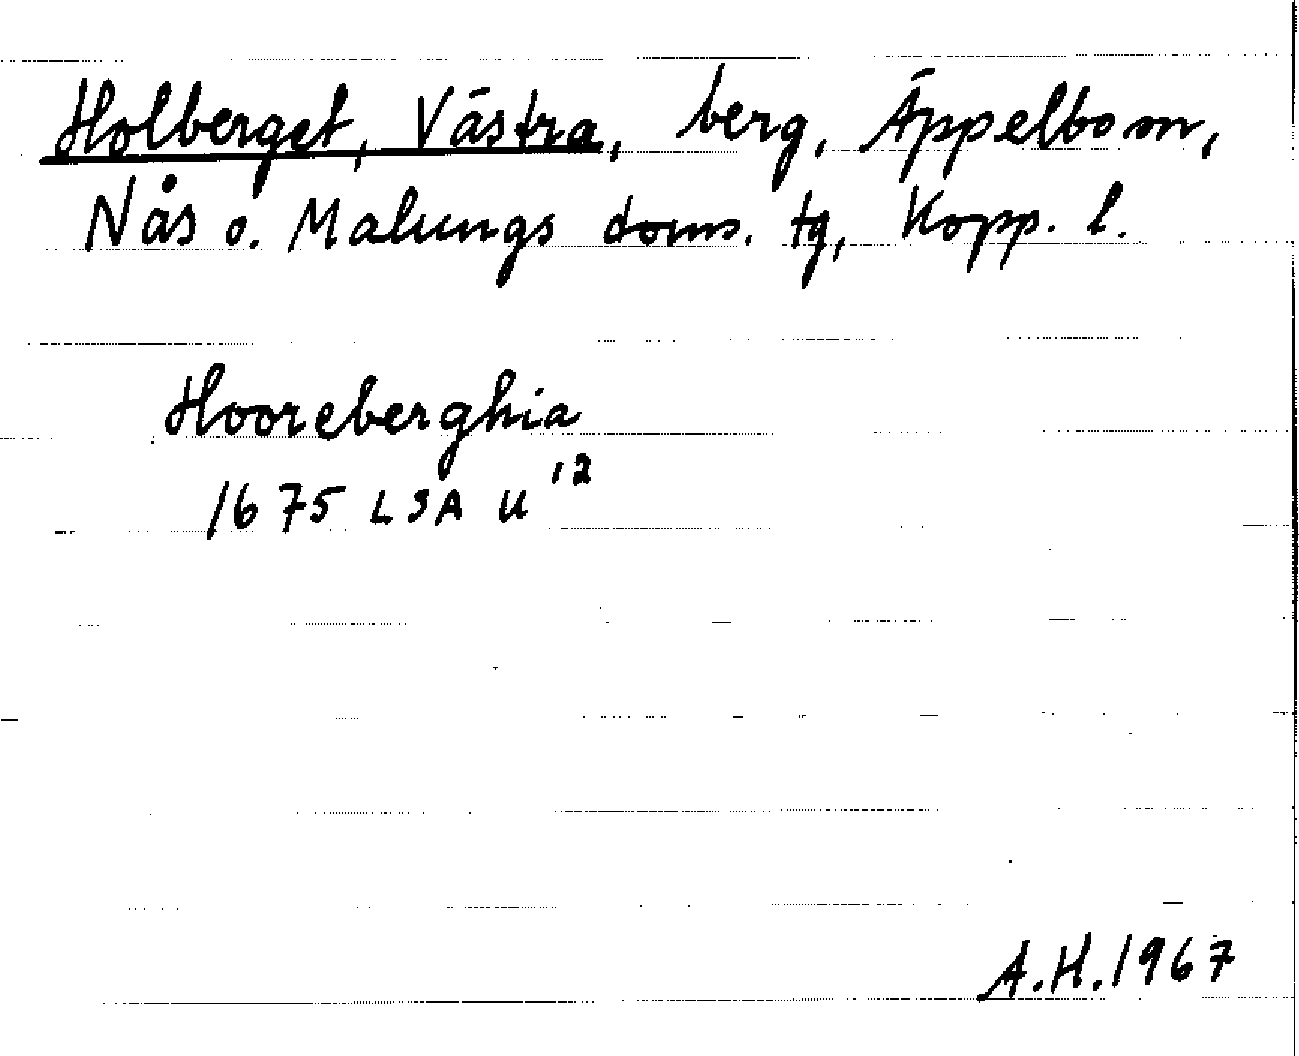 Holberget, Västra, berg, Äppelbo sn,
Nås o. Malungs doms. tg, Kopp. l.
Hooreberghia
1675 LSA U 12
A.H. 1967